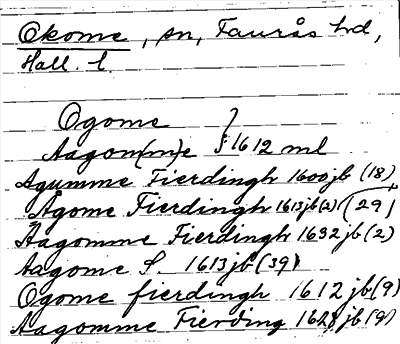 Okome, sn, Faurås hd,
Hall. l.
Ogome }
Aagom(m)e } 1612 ml
Agumme Fierdingh 1600 jb (18)
Agome Fierdingh 1613 jb(2) (29)
Aagomme Fierdingh 1632 jb (2)
Aagome S. 1613 jb (39)
Ogome fierdingh 1612 jb (9)
Aagomme Fierding 1628 jb (9)